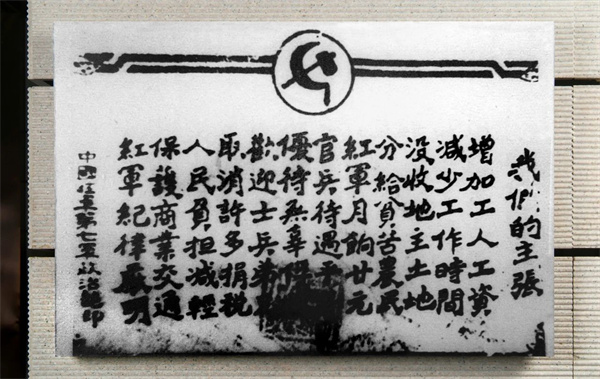 我們的主張
增加工人工資
減少工作時間
没收地主土地
分給貧苦農民
紅軍月餉廿元
官兵待遇平
優待無辜俘
歡迎士兵來
取消許多捐稅
人民負担減輕
保護商業交通
紅軍紀律嚴明
中國红軍第七軍政治部印